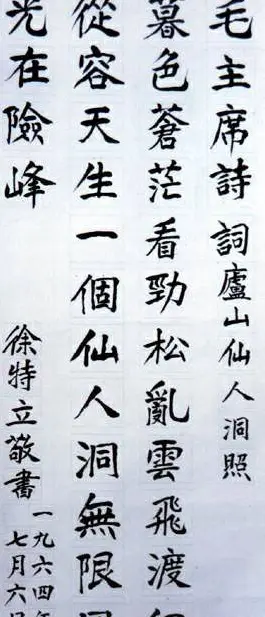 毛主席詩詞廬山仙人洞照
暮色蒼茫看勁松亂雲飛渡
從容天生一個仙人洞無限
光在險峰
徐特立敬書
一九六四年
七月六日